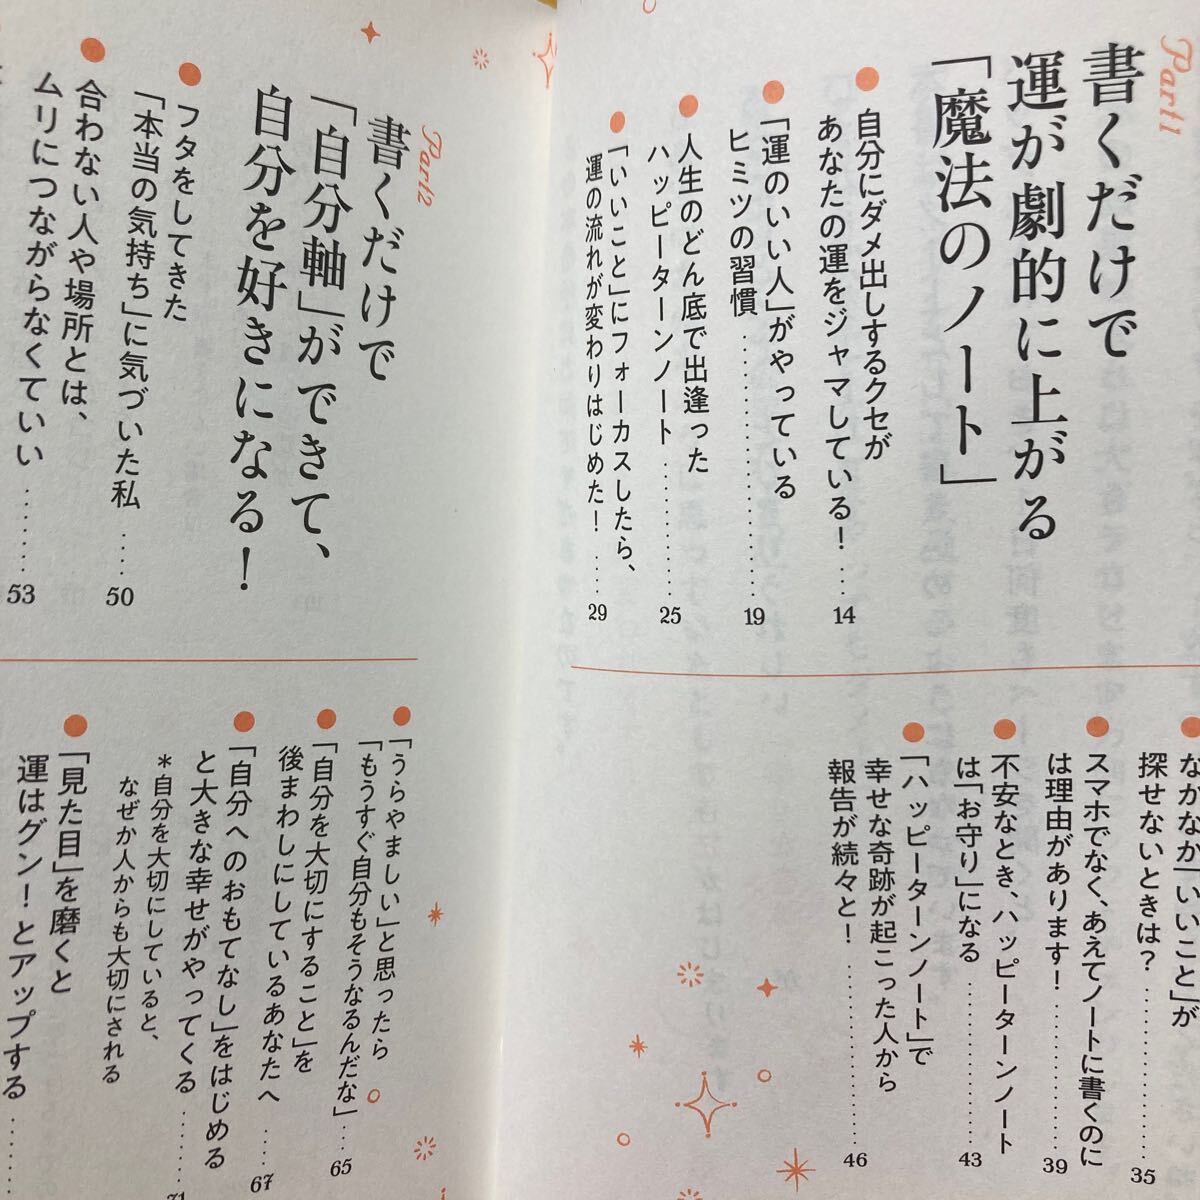 Part1
書くだけで
運が劇的に上がる
「魔法のノート」
自分にダメ出しするクセが
あなたの運をジャマしている！ ……14
「運のいい人」がやっている
ヒミツの習慣 ……………19
人生のどん底で出逢った
ハッピーターンノート ………25
「いいこと」にフォーカスしたら、
運の流れが変わりはじめた！ ……29
なかなか「いいこと」が
探せないときは？ ……………35
スマホでなく、あえてノートに書くのに
は理由があります！ ……………39
不安なとき、ハッピーターンノート
は「お守り」になる ……………43
「ハッピーターンノート」で
幸せな奇跡が起こった人から
報告が続々と！ ……………46
Part2
書くだけで
「自分軸」ができて、
自分を好きになる！
フタをしてきた
「本当の気持ち」に気づいた私 ……50
合わない人や場所とは、
ムリにつながらなくていい ………53
「うらやましい」と思ったら
「もうすぐ自分もそうなるんだな」 ……65
「自分を大切にすること」を
後まわしにしているあなたへ ……67
「自分へのおもてなし」をはじめる
と大きな幸せがやってくる ………71
＊自分を大切にしていると、
なぜか人からも大切にされる
「見た目」を磨くと
運はグン！とアップする ………